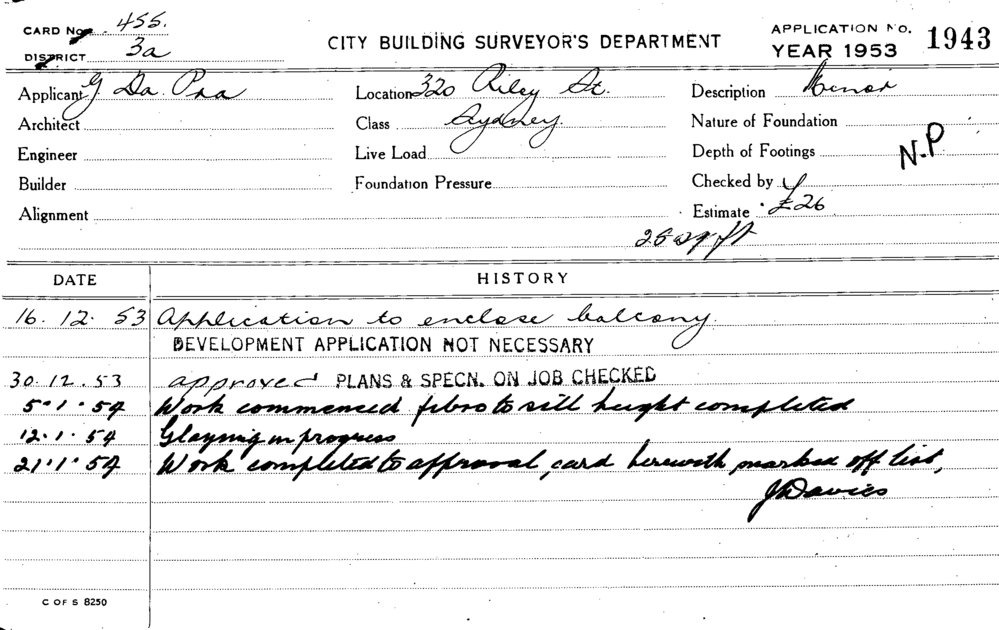 CARD No. 455.
DISTRICT 3a
CITY BUILDING SURVEYOR'S DEPARTMENT
APPLICATION NO. 1943
YEAR 1953
Applicant G Da Pra
Location 320 Riley St.
Description Minor
Architect
Class Sydney.
Nature of Foundation
Engineer
Live Load
Depth of Footings
N.P
Builder
Foundation Pressure
Checked by
Alignment
Estimate £26
28 sq ft
DATE HISTORY
16.12.53 Application to enclose balcony.
DEVELOPMENT APPLICATION NOT NECESSARY
30.12.53 approved PLANS & SPECN. ON JOB CHECKED
5.1.54 Work commenced fibro to sill height completed
12.1.54 Glaying in progress
21.1.54 Work completed to approval, card herewith marked off list,
J Davies
C OF S 8250